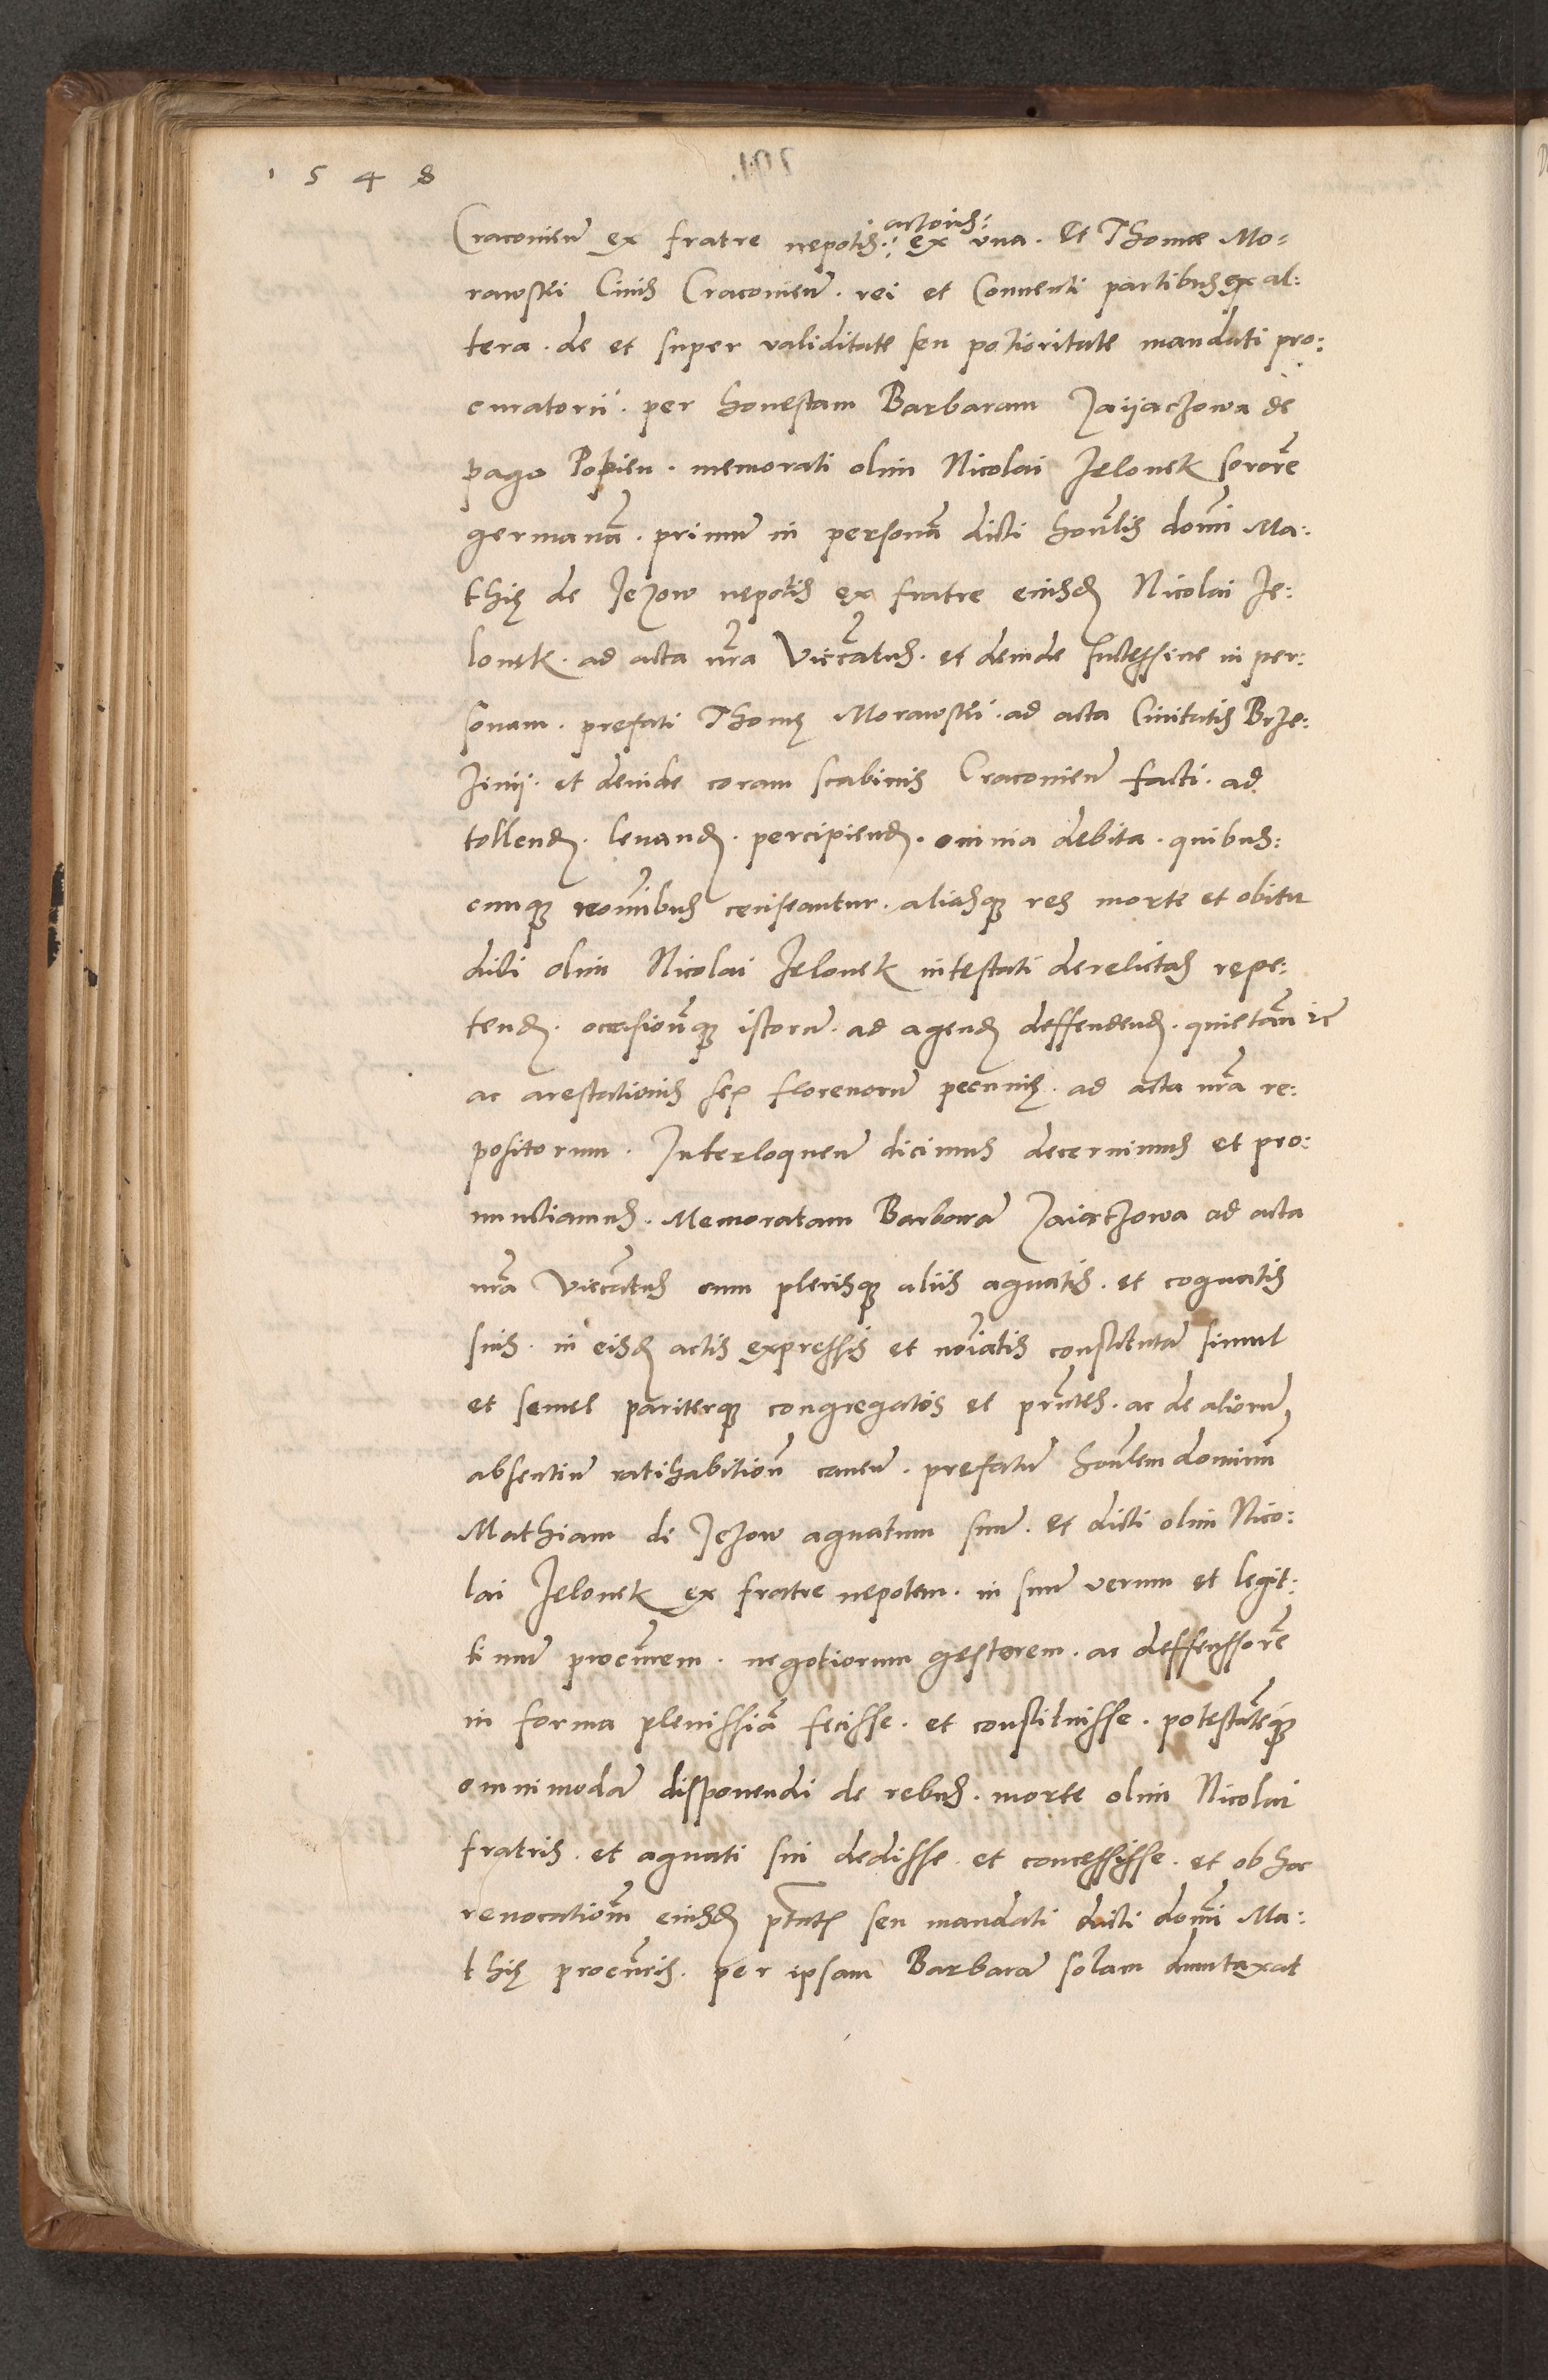 1548
Cracovien̄ ex fratre nepotis: actoris: ex una. Et Thomæ Mo=
rawski Civis Cracovien̄. rei et Conventi partibus ex al:
tera. de et super validitate seu potioritate mandati pro:
curatorii. per honestam Barbaram Zaijaczowa de
pago Popien. memorati olim Nicolai Jelonek sororē
germanā. primū in personā dicti honlis domi Ma:
thię de Jezow nepotis ex fratre eiusd Nicolai Je:
lonek. ad acta nra Viccatus. et deinde successive in per:
sonam. prefati Thomę Morawski. ad acta Civitatis Brze:
zinij. et deinde coram scabinis Cracovien̄ facti. ad
tollend. levand. percipiend. omnia debita. quibus:
cunq nomibus censeantur. aliasq res morte et obitu
dicti olim Nicolai Jelonek intestati derelictas repe:
tend. occasionēq istorū. ad agend deffendend. quietan̄ ꝛc
ac arestationis sex florenorū pecunię. ad acta nra re:
positorum. Interloquen̄ dicimus decernimus et pro:
nunctiamus. Memoratam Barbarā Zaiaczowa ad acta
nra Viccatus cum plerisq aliis agnatis. et cognatis
suis. in eisd actis expressis et noīatis constitutā simul
et semel pariterq congregatos et prntes. ac de aliorū
absentiū ratihabitionē caven̄. prefatū honlem dominū
Mathiam de Jezow agnatum suū. et dicti olim Nico:
lai Jelonek ex fratre nepotem. in suū verum et legit:
timū procurem. negotiorum gestorem. ac deffenssorē
in forma plenissiā fecisse. et constituisse. potestatēq
omnimodā disponendi de rebus. morte olim Nicolai
fratris. et agnati sui dedisse. et concessisse. et ob hoc
revocationem eiusd ptatis seu mandati dicti domi Ma:
thię procuris. per ipsam Barbarā solam dumtaxat